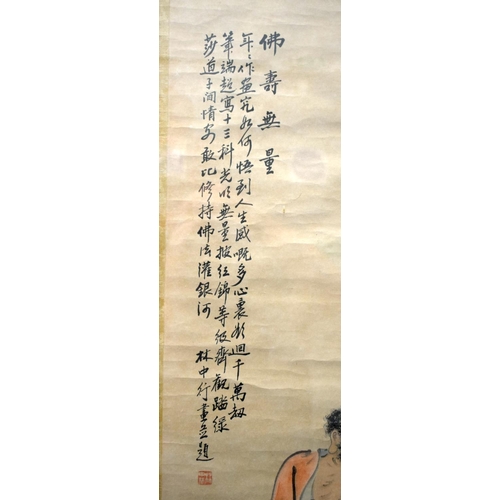 佛壽無量
年々作畫究如何悟到人生感嘅多心裏欲迴千萬劫
筆端超寫十三科光明無量披紅錦等級齊觀踏綠
莎道子閒情安敢比修持佛法灌銀河
林中行畫並題